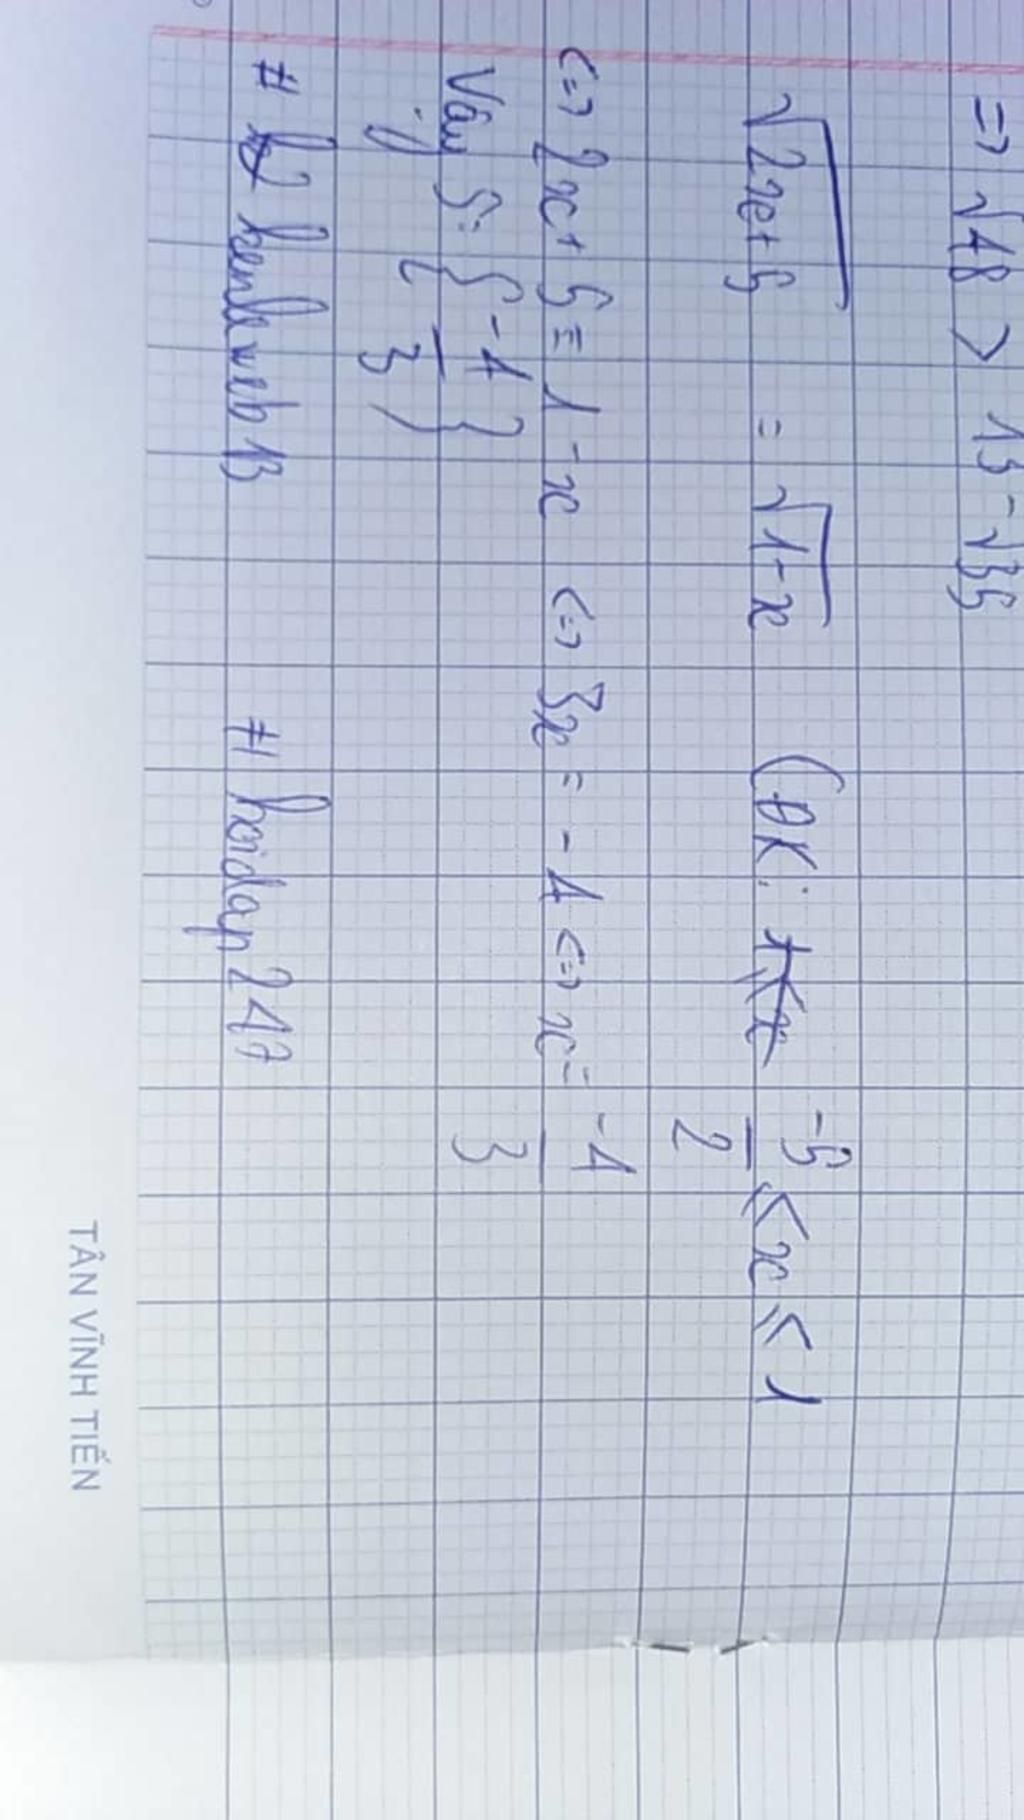 => √48 > 13 - √35
√2x+5 = √1-x (ĐK: -5/2 ≤ x ≤ 1
<=> 2x+5 = 1-x <=> 3x = -4 <=> x = -4/3
Vậy S = { -4/3 }
# kenlaweb13 # hoidap247
TÂN VĨNH TIẾN